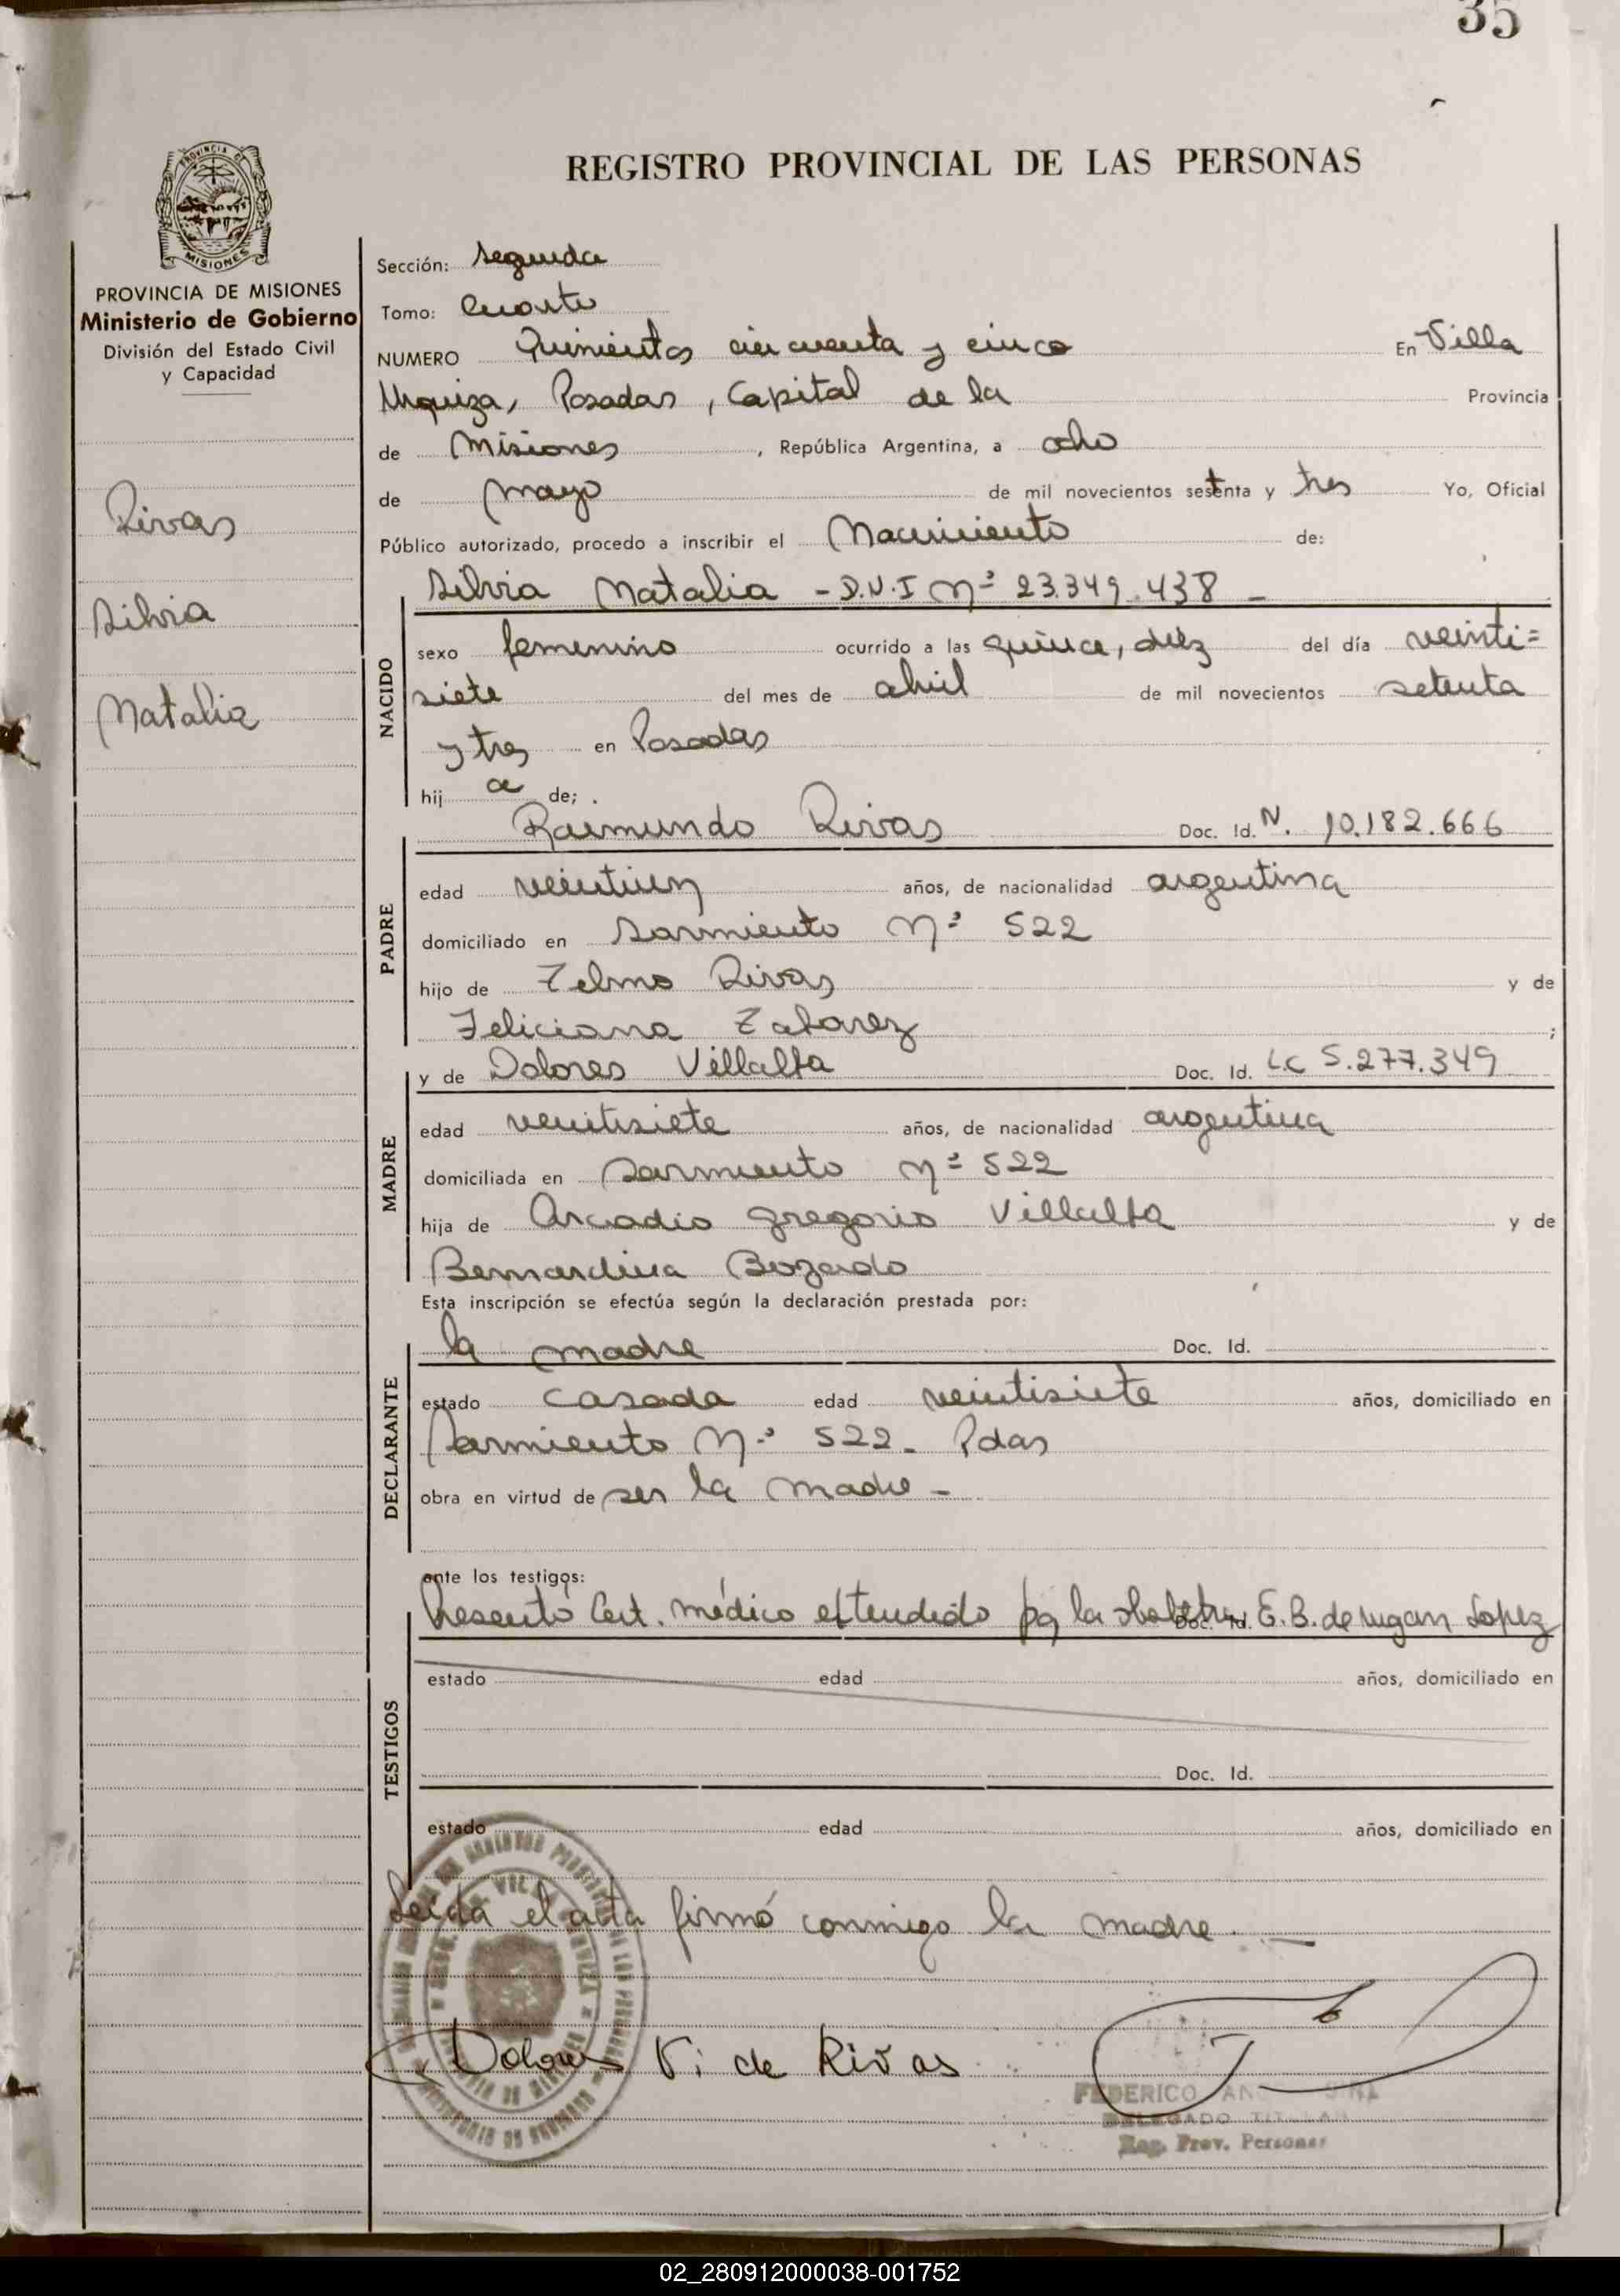 35
REGISTRO PROVINCIAL DE LAS PERSONAS
PROVINCIA DE MISIONES
Ministerio de Gobierno
División del Estado Civil
y Capacidad
Rivas
Silvia
Natalia
Sección: Segunda
Tomo: Cuarto
NUMERO Quinientos cincuenta y cinco En Villa
Urquiza, Posadas, Capital de la Provincia
de Misiones, República Argentina, a ocho
de mayo de mil novecientos setenta y tres Yo, Oficial
Público autorizado, procedo a inscribir el Nacimiento de:
NACIDO
Silvia Natalia - D.N.I Nº 23.349.438 -
sexo femenino ocurrido a las quince, diez del día veinti=
siete del mes de abril de mil novecientos setenta
y tres en Posadas
hij a de;
PADRE
Raimundo Rivas Doc. Id. N. 10.182.666
edad veintiun años, de nacionalidad argentina
domiciliado en Sarmiento Nº 522
hijo de Telmo Rivas y de
Feliciana Tabarez;
MADRE
y de Dolores Villalba Doc. Id. L.C 5.277.349
edad veintisiete años, de nacionalidad argentina
domiciliada en Sarmiento Nº 522
hija de Arcadio Gregorio Villalba y de
Bernardina Bozado
Esta inscripción se efectúa según la declaración prestada por:
DECLARANTE
la madre Doc. Id.
estado casada edad veintisiete años, domiciliado en
Sarmiento Nº 522. Pdas
obra en virtud de ser la madre -
ante los testigos:
Presentó Cert. médico extendido por la obstetra Doc. Id. E.B. de Lopez
TESTIGOS
estado edad años, domiciliado en
Doc. Id.
estado edad años, domiciliado en
Leida el acta firmó conmigo la madre. -
Dolores V. de Rivas
FEDERICO
DELEGADO TITULAR
Reg. Prov. Personas
02_280912000038-001752